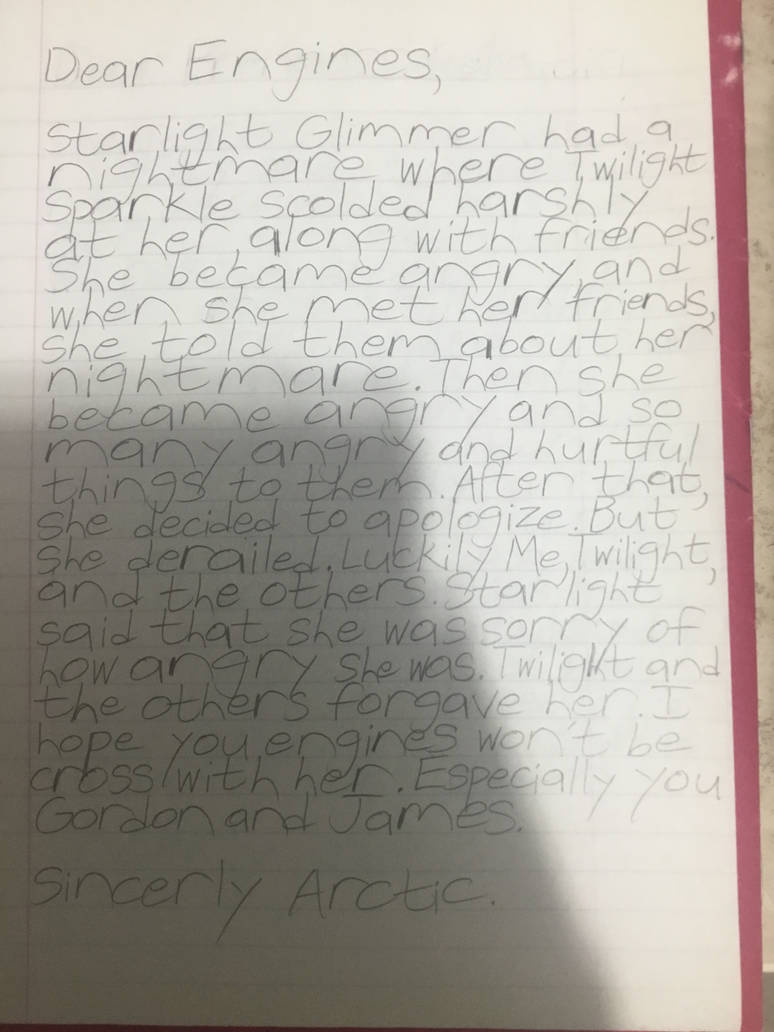 Dear Engines,
Starlight Glimmer had a
nightmare where Twilight
Sparkle scolded harshly
at her, along with friends.
She became angry, and
when she met her friends,
she told them about her
nightmare. Then she
became angry and so
many angry and hurtful
things to them. After that,
she decided to apologize. But
she derailed. Luckily Me, Twilight,
and the others. Starlight
said that she was sorry of
how angry she was. Twilight and
the others forgave her. I
hope you engines won't be
cross with her. Especially you
Gordon and James.
Sincerly Arctic.